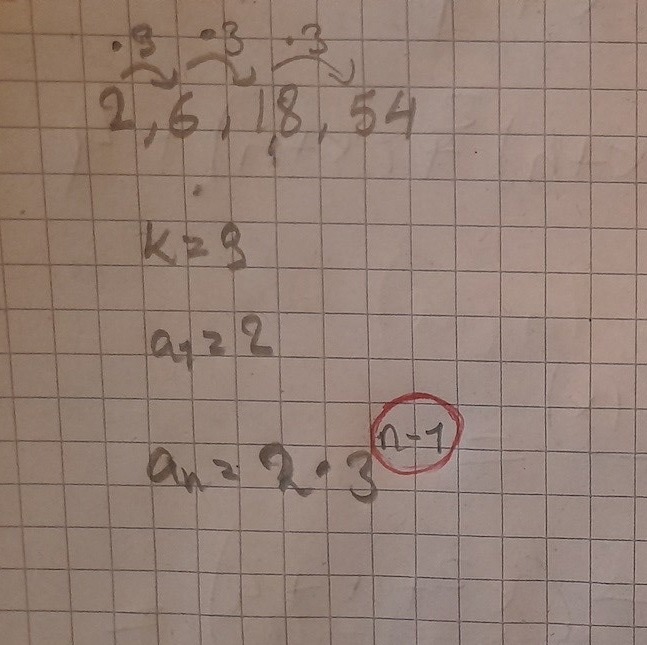 ·3 ·3 ·3
2, 6, 18, 54
k = 3
a₁ = 2
aₙ = 2 · 3ⁿ⁻¹